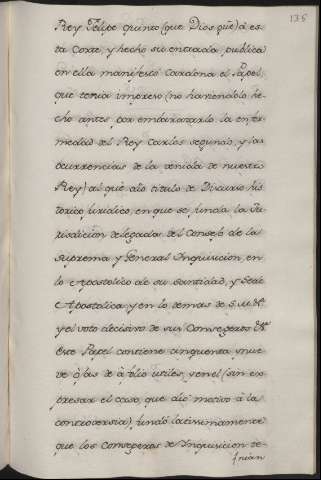 136
Rey Felipe quinto (que Dios gūe) à es-
ta Corte, y hecho su entrada publica
en ella manifestò Cardona el Papel,
que tenia impreso (no haviendolo he-
cho antes por embarazarlo la enfer-
medad del Rey Carlos segundo, y las
ocurrencias de la venida de nuestro
Rey) al que diò titulo de Discurso his-
torico juridico, en que se funda la Ju-
risdicion delegada del Consejo de la
suprema y General Inquisicion, en
lo Apostolico de su santidad, y Sede
Apostolica, y en lo demas de S. Md.
y el voto decisivo de sus Consegeros
Este Papel contiene cinquenta y nue-
ve ojas de à folio utiles, y en el (sin ex-
presar el caso, que diò motivo à la
controversia) fundò latissimamente
que los Consegeros de Inquisicion te-
nian